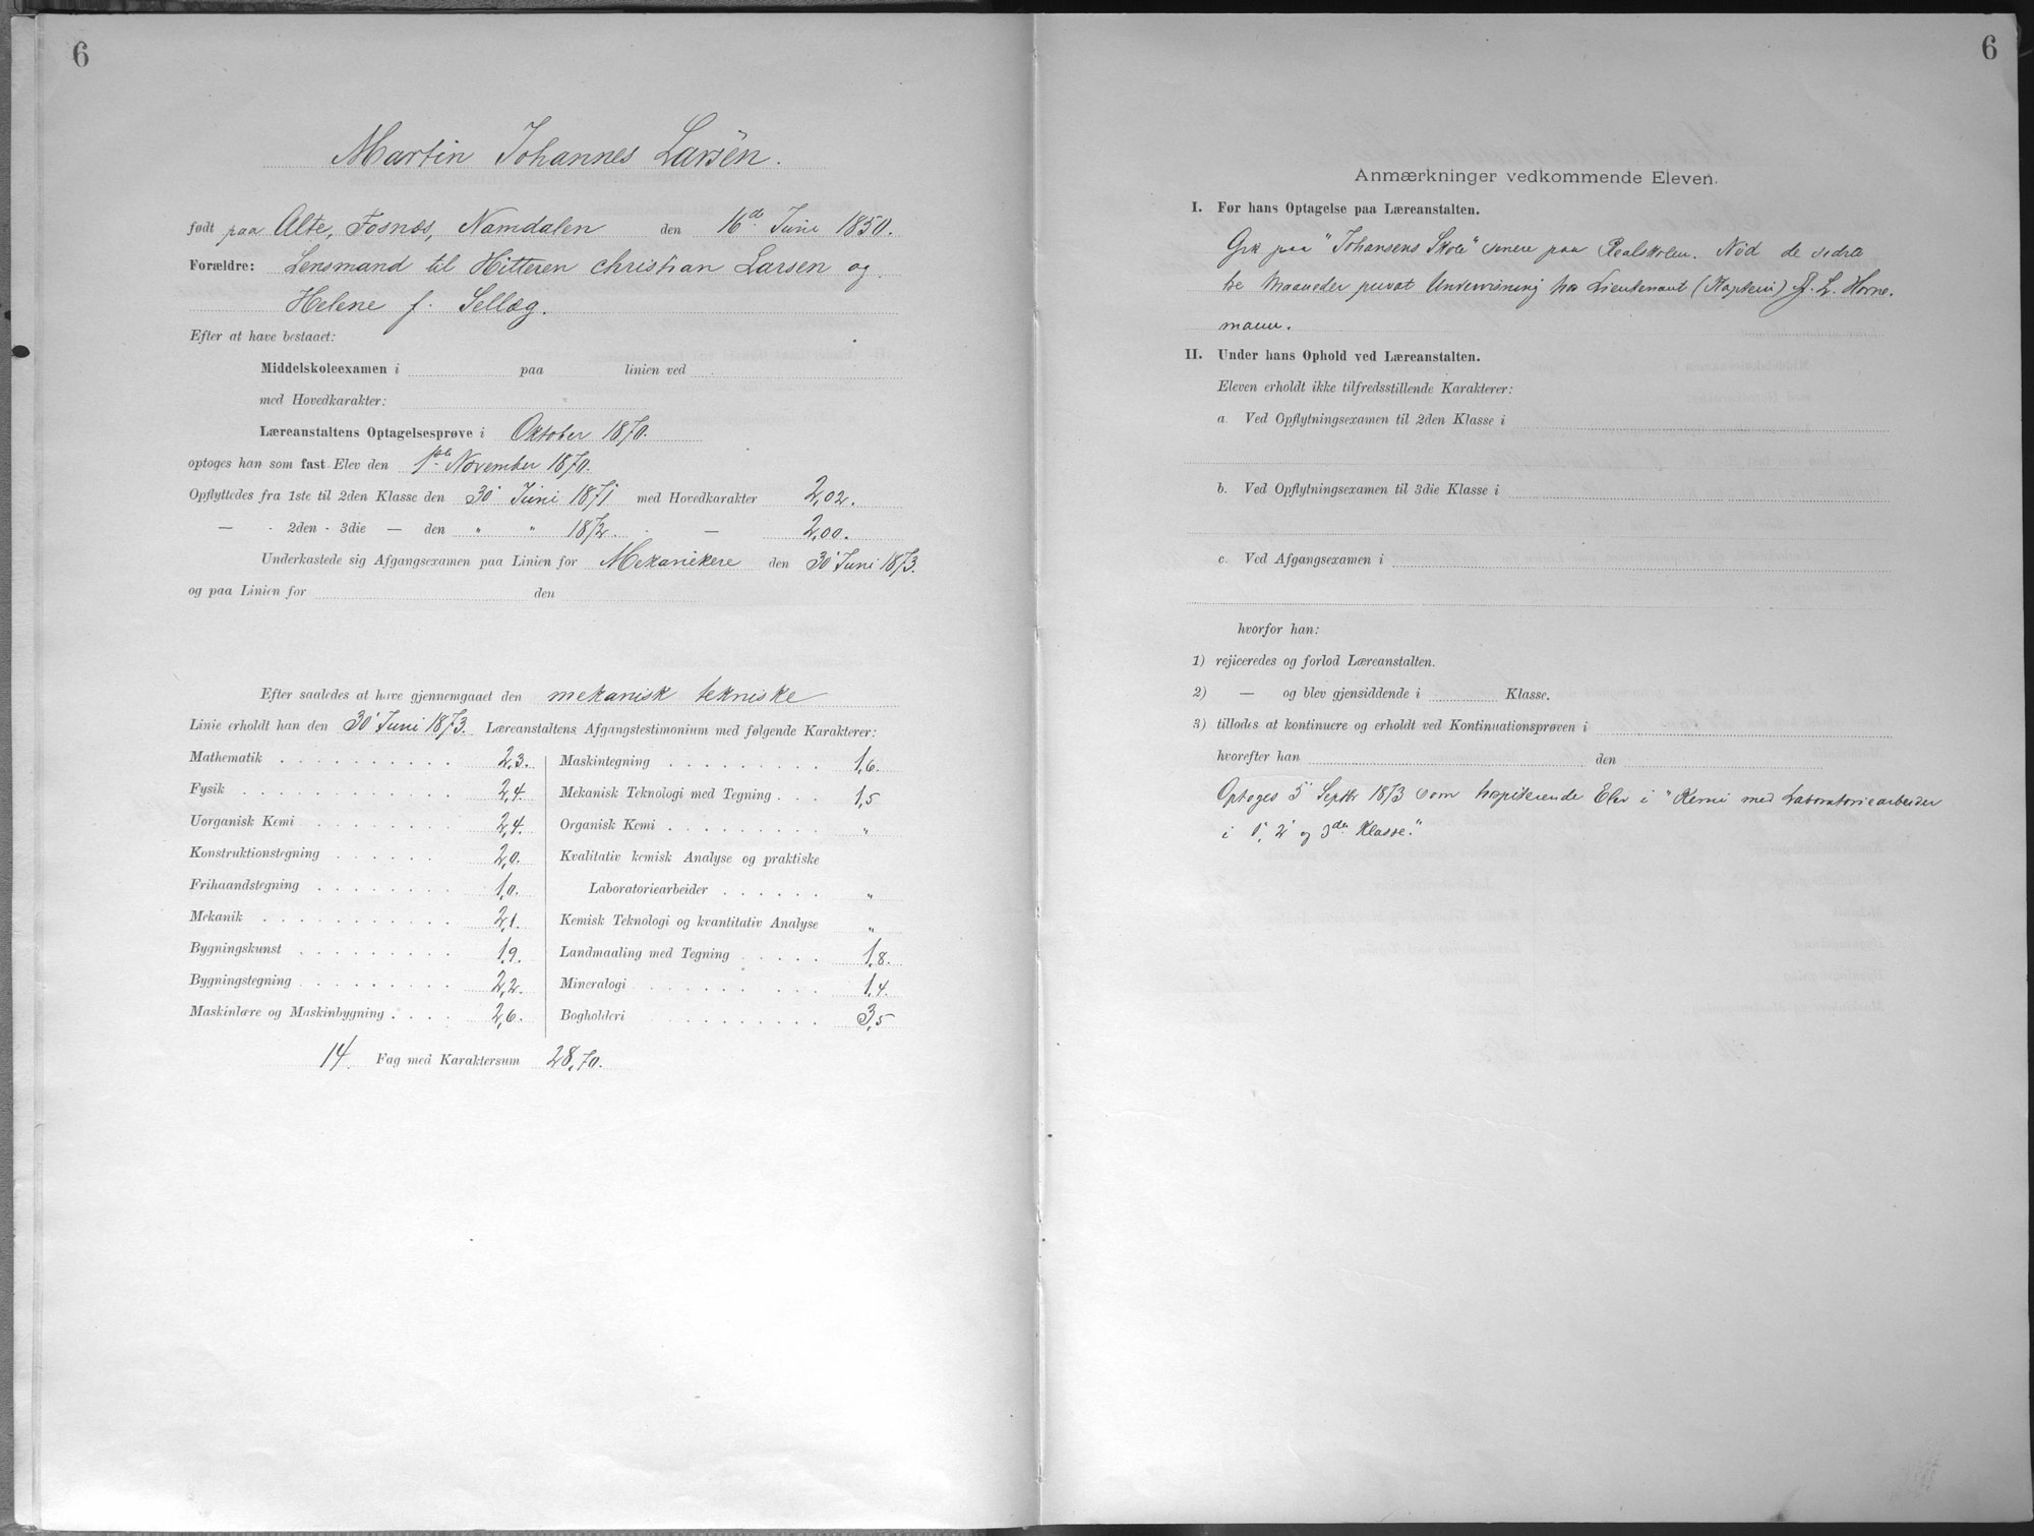 6
Martin Johannes Larsen.
født paa Alte, Fosnæs, Namdalen den 16de Juni 1850.
Forældre: Lensmand til Hitteren Christian Larsen og
Helene f. Sellæg.
Efter at have bestaaet:
Middelskoleexamen i paa linien ved
med Hovedkarakter:
Læreanstaltens Optagelsesprøve i Oktober 1870.
optoges han som fast Elev den 1ste November 1870.
Opflyttedes fra 1ste til 2den Klasse den 30' Juni 1871 med Hovedkarakter 2,02.
— - 2den - 3die — den " " 1872. — 2,00.
Underkastede sig Afgangsexamen paa Linien for Mekanikere den 30' Juni 1873.
og paa Linien for den
Efter saaledes at have gjennemgaaet den mekanisk tekniske
Linie erholdt han den 30' Juni 1873. Læreanstaltens Afgangstestimonium med følgende Karakterer:
Mathematik 2,3.
Fysik 2,4.
Uorganisk Kemi 2,4.
Konstruktionstegning 2,0.
Frihaandstegning 1,0.
Mekanik 2,1.
Bygningskunst 1,9.
Bygningstegning 2,2.
Maskinlære og Maskinbygning 2,6.
Maskintegning 1,6.
Mekanisk Teknologi med Tegning 1,5
Organisk Kemi "
Kvalitativ kemisk Analyse og praktiske
Laboratoriearbeider "
Kemisk Teknologi og kvantitativ Analyse "
Landmaaling med Tegning 1,8.
Mineralogi 1,4.
Bogholderi 3,5
14 Fag med Karaktersum 28,70.
6
Anmærkninger vedkommende Eleven.
I. Før hans Optagelse paa Læreanstalten.
Gik paa "Johansens Skole" senere paa Realskolen. Nød de sidste
tre Maaneder privat Undervisning hos Lieutenant (Kaptein) J. L. Horne-
mann.
II. Under hans Ophold ved Læreanstalten.
Eleven erholdt ikke tilfredsstillende Karakterer:
a. Ved Opflytningsexamen til 2den Klasse i
b. Ved Opflytningsexamen til 3die Klasse i
c. Ved Afgangsexamen i
hvorfor han:
1) rejiceredes og forlod Læreanstalten.
2) — og blev gjensiddende i Klasse.
3) tillodes at kontinuere og erholdt ved Kontinuationsprøven i
hvorefter han den
Optoges 5' Septbr 1873 som hospiterende Elev i "Kemi med Laboratoriearbeider
i 1', 2' og 3die Klasse."